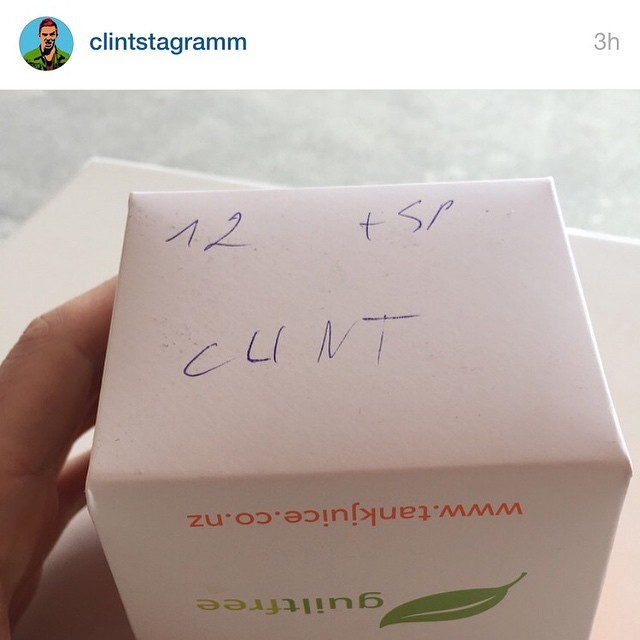 clintstagramm 3h
12 +SP
CLINT
www.tankjuice.co.nz
guiltfree